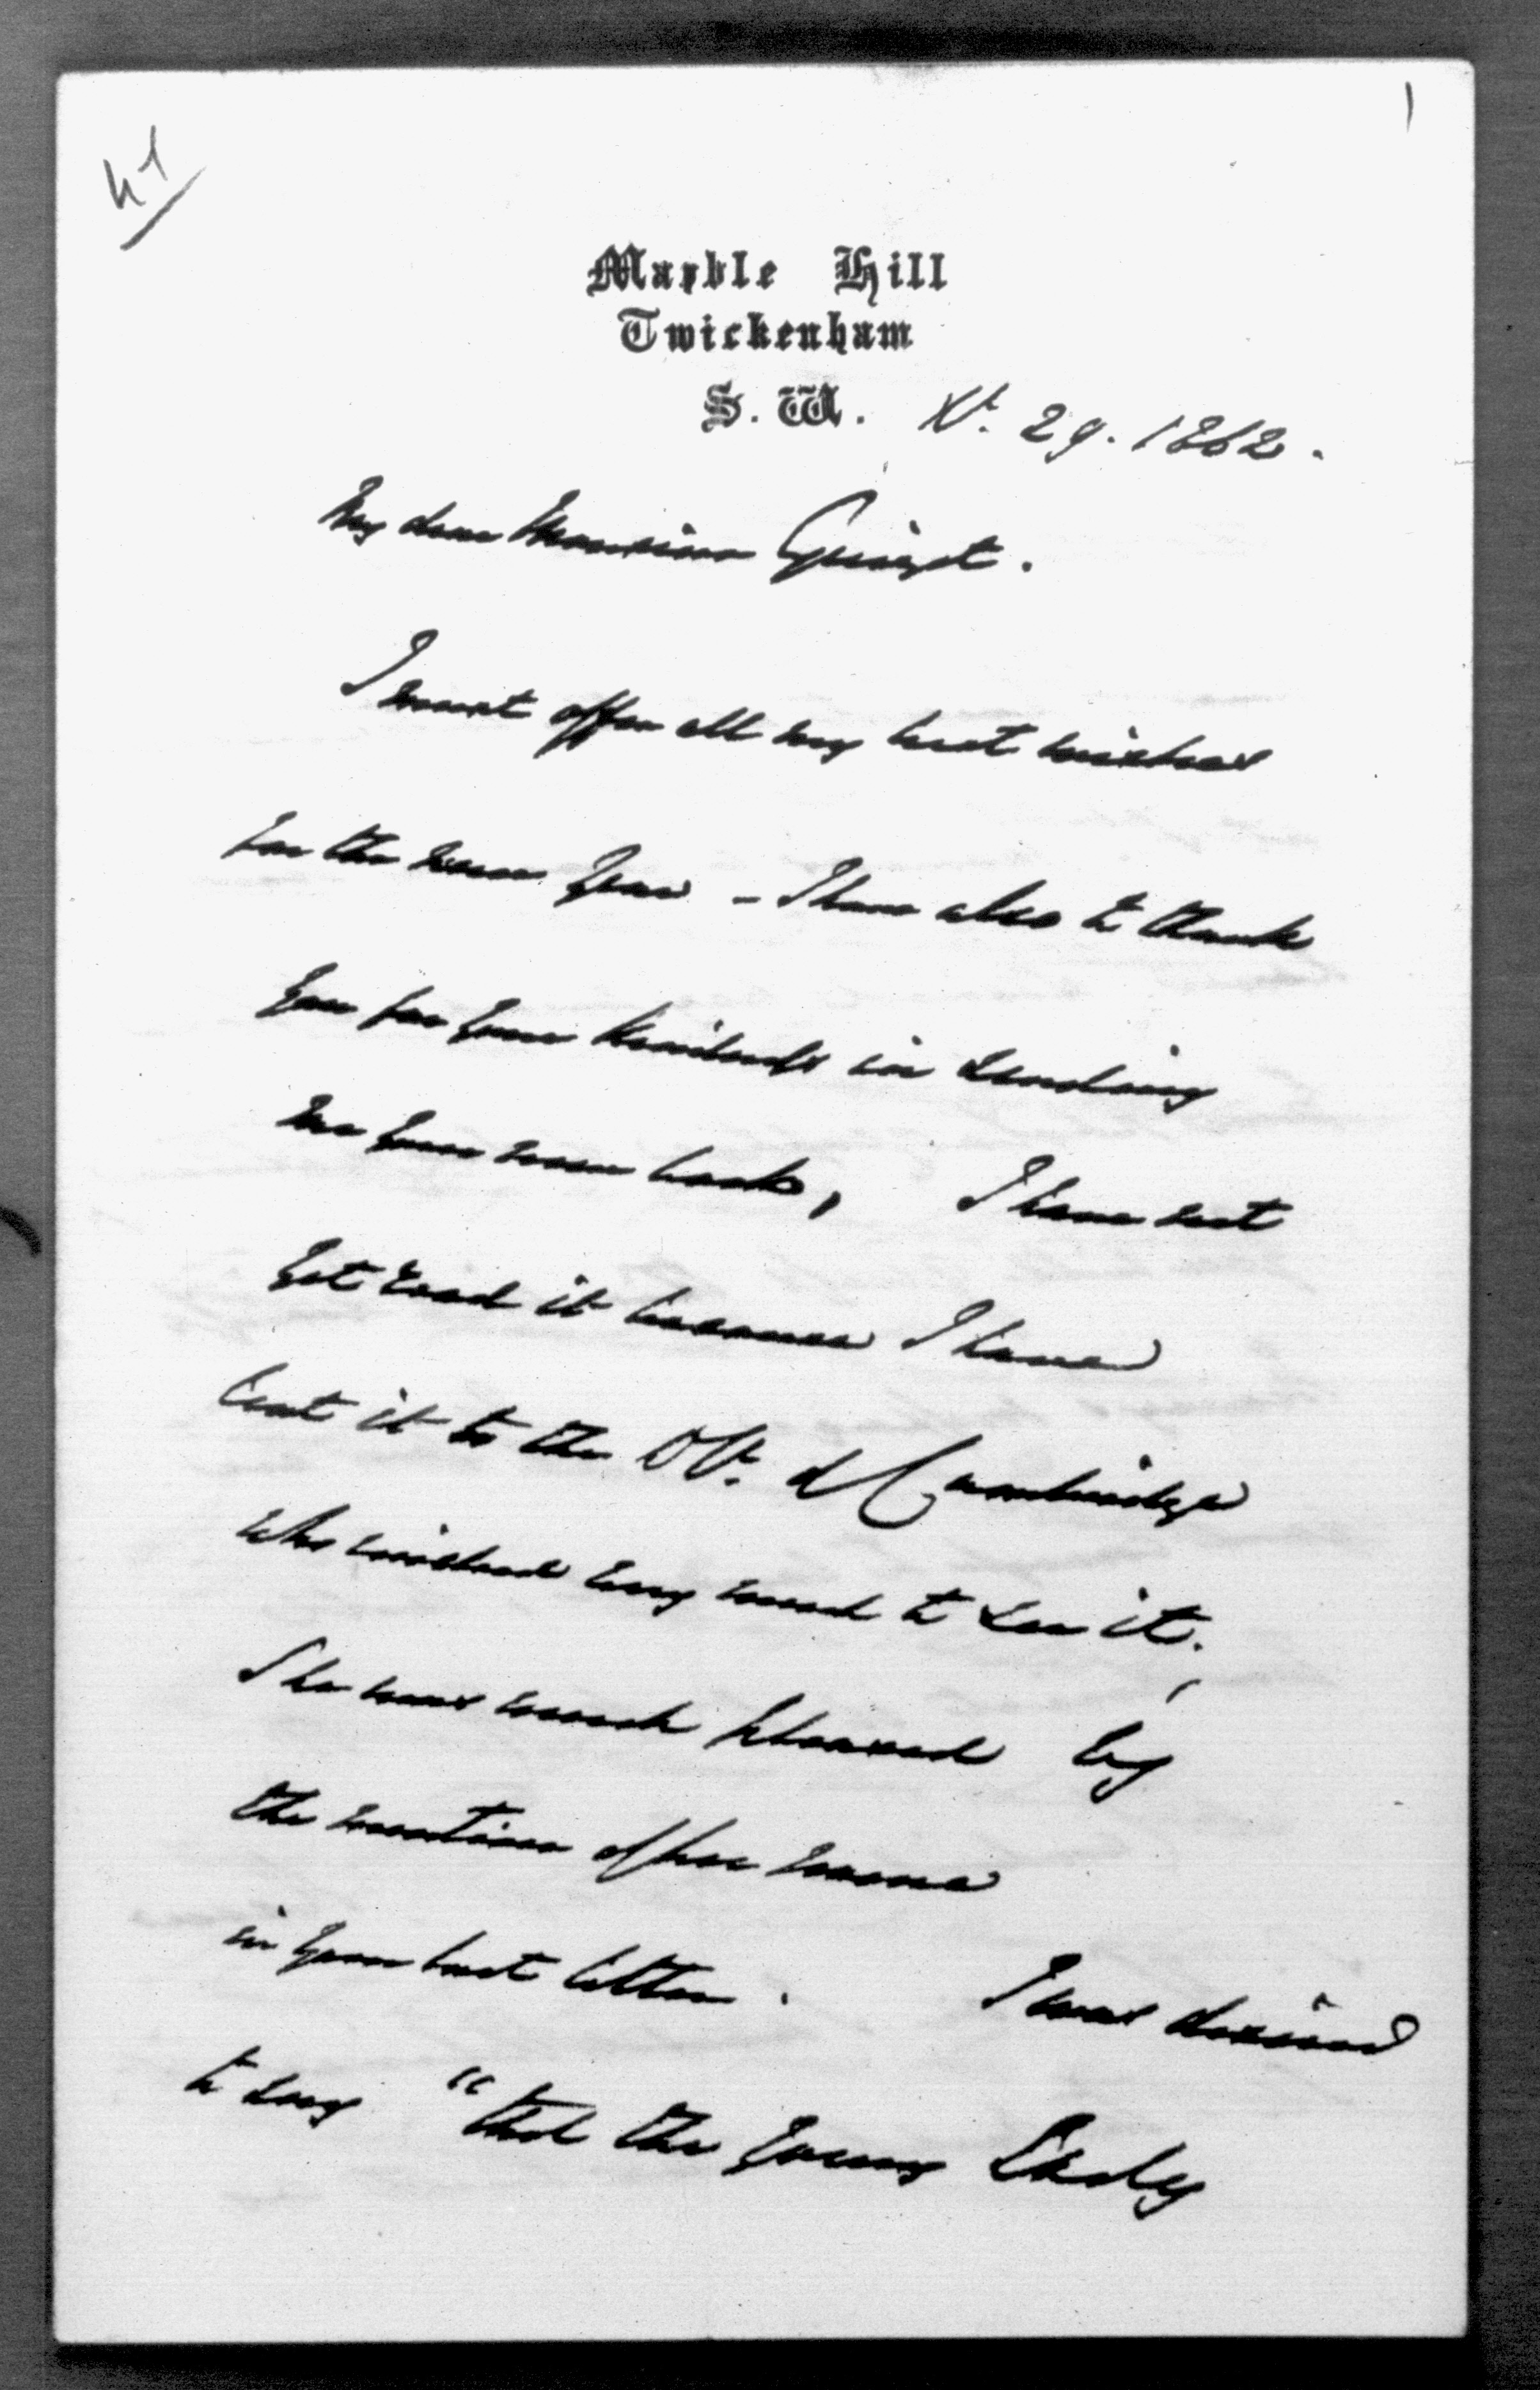 41
1
Marble Hill
Twickenham
S. W. Xr. 29. 1862.
My dear Monsieur Guizot.
I must offer all my best wishes
for the new Year - I have also to thank
you for your kindness in sending
me your new book, I have not
yet read it because I have
lent it to the of Cambridge
who wished very much to see it.
She was much pleased by
the mention of her name
in your last letter. I was desired
to say "that the young Lady